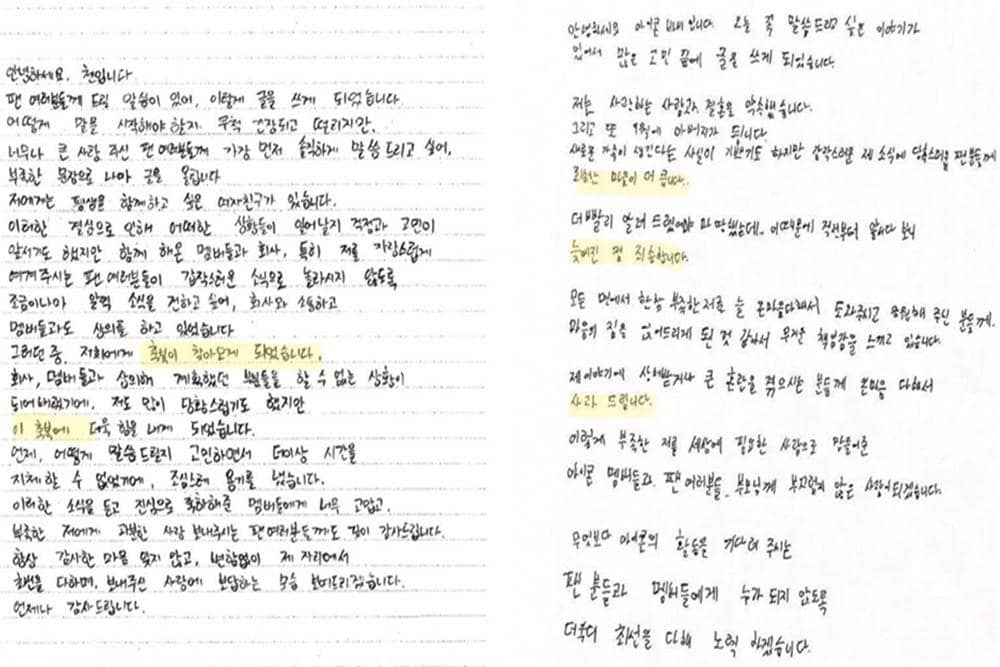 안녕하세요. 첸입니다
팬 여러분들께 드릴 말씀이 있어, 이렇게 글을 쓰게 되었습니다.
어떻게 말을 시작해야할지. 무척 긴장되고 떨리지만,
너무나 큰 사랑 주신 팬 여러분들께 가장 먼저 솔직하게 말씀드리고 싶어,
부족한 문장으로 나마 글을 올립니다
저에게는 평생을 함께하고 싶은 여자친구가 있습니다.
이러한 결심으로 인해 어떠한 상황들이 일어날지 걱정과 고민이
앞서기도 했지만 함께 해온 멤버들과 회사, 특히 저를 자랑스럽게
여겨주시는 팬 여러분들이 갑작스러운 소식으로 놀라시지 않도록
조금이나마 일찍 소식을 전하고 싶어, 회사와 소통하고
멤버들과도 상의를 하고 있었습니다
그러던 중, 저희에게 축복이 찾아오게 되었습니다.
회사, 멤버들과 상의해 계획했던 부분들을 할 수 없는 상황이
되어버렸기에, 저도 많이 당황스럽기도 했지만
이 축복에 더욱 힘을 내게 되었습니다.
언제, 어떻게 말씀드릴지 고민하면서 더이상 시간을
지체할 수 없었기에, 조심스레 용기를 냈습니다.
이러한 소식을 듣고 진심으로 축하해준 멤버들에게 너무 고맙고.
부족한 저에게 과분한 사랑 보내주시는 팬 여러분들께도 깊이 감사드립니다.
항상 감사한 마음 잊지 않고, 변함없이 제 자리에서
최선을 다하며, 보내주신 사랑에 보답하는 모습 보여드리겠습니다.
언제나 감사드립니다.
안녕하세요 아이콘 바비입니다. 오늘 꼭 말씀드리고 싶은 이야기가
있어서 많은 고민 끝에 글을 쓰게 되었습니다.
저는 사랑하는 사람과 결혼을 약속했습니다.
그리고 또 9월에 아버지가 됩니다.
새로운 가족이 생긴다는 사실이 기쁘기도 하지만 갑작스러운 제 소식에 당혹스러울 팬분들께
죄송한 마음이 더 큽니다.
더 빨리 알려드렸어야 마땅했는데, 걱정부터 앞서다 보니
늦어진 점 죄송합니다.
모든 면에서 한참 부족한 저를 늘 온마음다해서 소중하게 응원해 주신 분들께.
마음의 짐을 얹어드리게 된 것 같아서 무거운 책임감을 느끼고 있습니다.
제 이야기에 상처받거나 큰 혼란을 겪으시는 분들께 온마음 다해서
사과 드립니다.
이렇게 부족한 저를 세상에 필요한 사람으로 만들어준
아이콘 멤버들과, 팬 여러분들. 부모님께 부끄럽지 않은 사람이 되겠습니다.
무엇보다 아이콘의 활동을 기다려 주시는
팬 분들과 멤버들에게 누가 되지 않도록
더욱더 최선을 다해 노력하겠습니다.